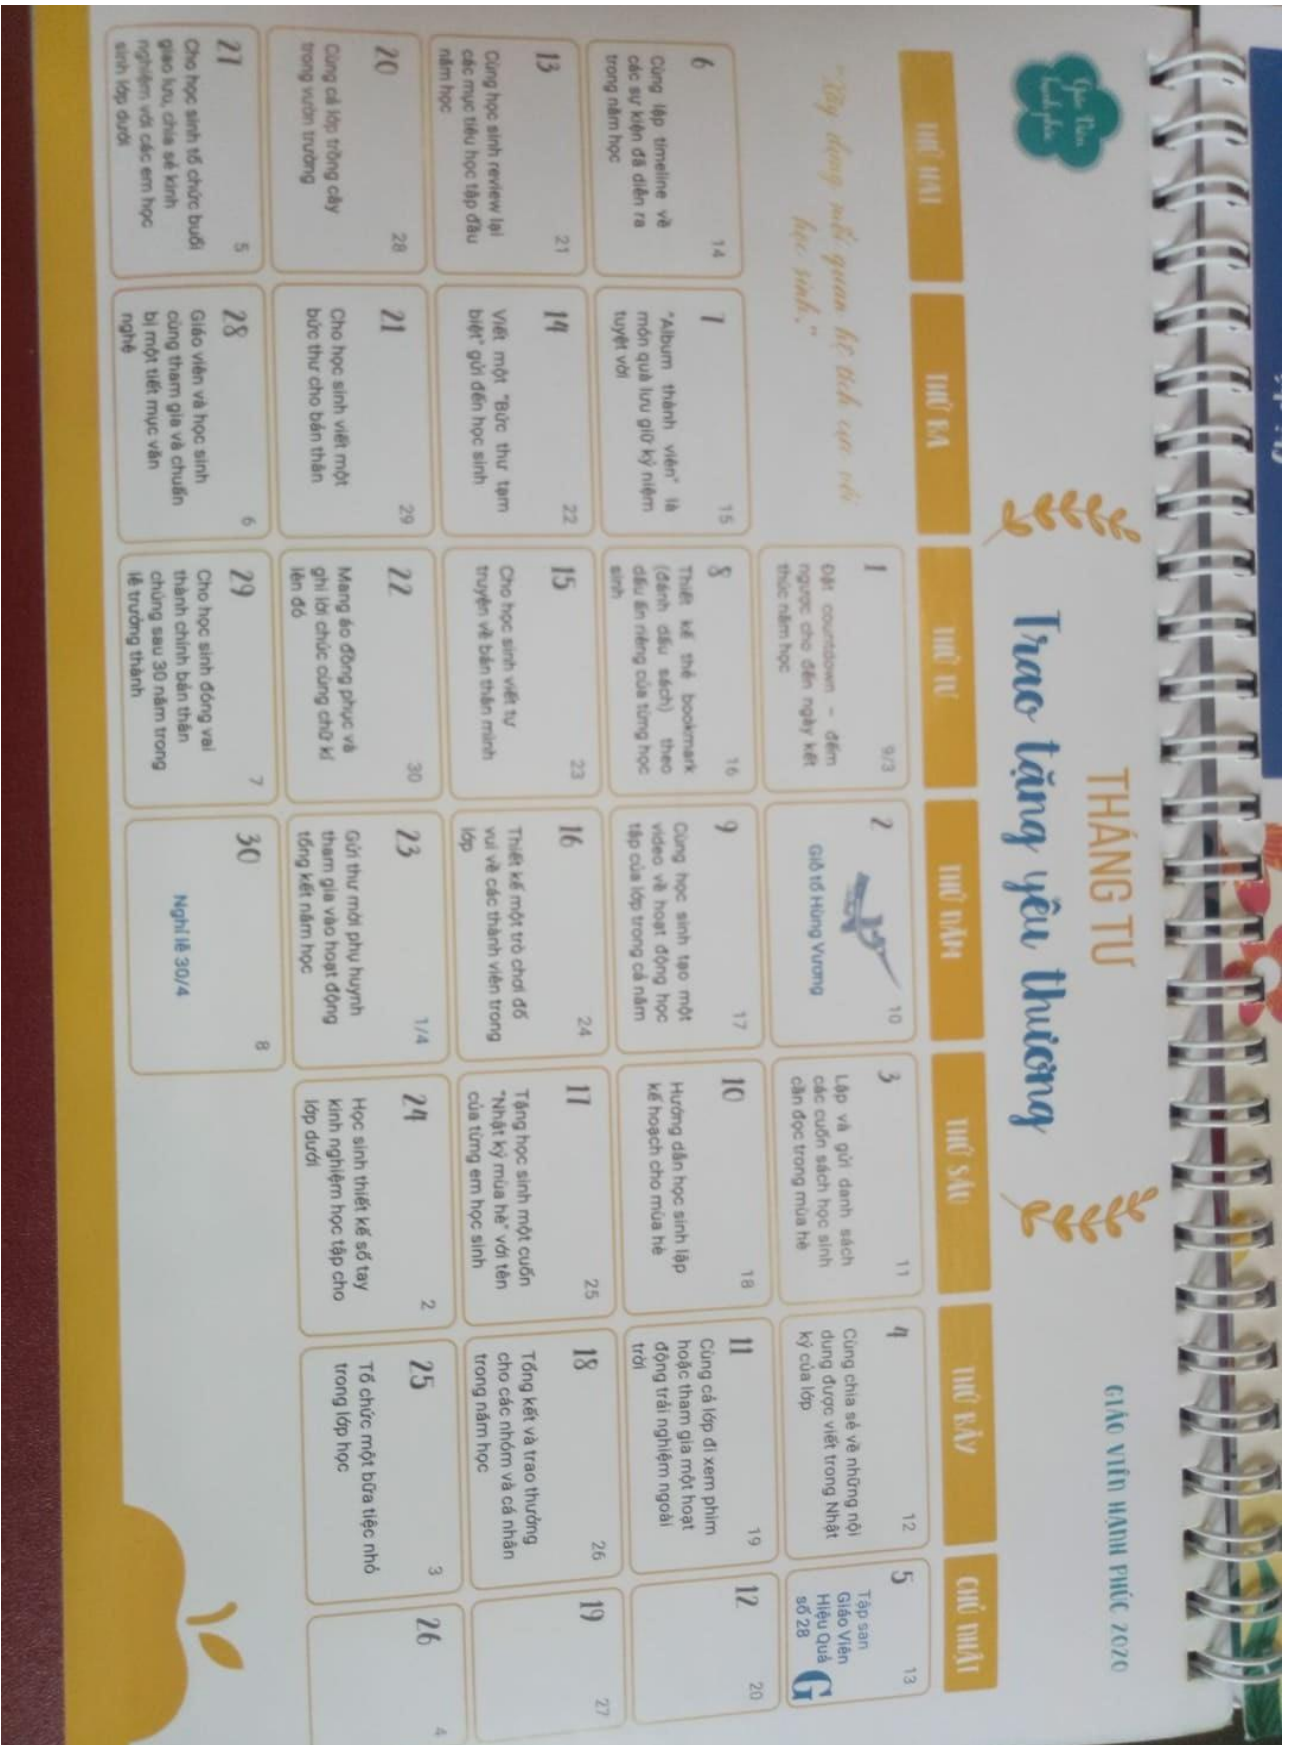 Giáo Viên
hạnh phúc
THÁNG TƯ
GIÁO VIÊN HẠNH PHÚC 2020
Trao tặng yêu thương
THỨ HAI
THỨ BA
THỨ TƯ
THỨ NĂM
THỨ SÁU
THỨ BẢY
CHỦ NHẬT
"Xây dựng mối quan hệ tích cực với
học sinh."
1
9/3
Đặt countdown - đếm
ngược cho đến ngày kết
thúc năm học
2
10
Giỗ tổ Hùng Vương
3
11
Lập và gửi danh sách
các cuốn sách học sinh
cần đọc trong mùa hè
4
12
Cùng chia sẻ về những nội
dung được viết trong Nhật
ký của lớp
5
13
Tập san
Giáo Viên
Hiệu Quả
số 28
G
6
14
Cùng lập timeline về
các sự kiện đã diễn ra
trong năm học
7
15
"Album thành viên" là
món quà lưu giữ kỷ niệm
tuyệt vời
8
16
Thiết kế thẻ bookmark
(đánh dấu sách) theo
dấu ấn riêng của từng học
sinh
9
17
Cùng học sinh tạo một
video về hoạt động học
tập của lớp trong cả năm
10
18
Hướng dẫn học sinh lập
kế hoạch cho mùa hè
11
19
Cùng cả lớp đi xem phim
hoặc tham gia một hoạt
động trải nghiệm ngoài
trời
12
20
13
21
Cùng học sinh review lại
các mục tiêu học tập đầu
năm học
14
22
Viết một "Bức thư tạm
biệt" gửi đến học sinh
15
23
Cho học sinh viết tự
truyện về bản thân mình
16
24
Thiết kế một trò chơi đố
vui về các thành viên trong
lớp
17
25
Tặng học sinh một cuốn
"Nhật ký mùa hè" với tên
của từng em học sinh
18
26
Tổng kết và trao thưởng
cho các nhóm và cá nhân
trong năm học
19
27
20
28
Cùng cả lớp trồng cây
trong vườn trường
21
29
Cho học sinh viết một
bức thư cho bản thân
22
30
Mang áo đồng phục và
ghi lời chúc cùng chữ kí
lên đó
23
1/4
Gửi thư mời phụ huynh
tham gia vào hoạt động
tổng kết năm học
24
2
Học sinh thiết kế sổ tay
kinh nghiệm học tập cho
lớp dưới
25
3
Tổ chức một bữa tiệc nhỏ
trong lớp học
26
4
27
5
Cho học sinh tổ chức buổi
giao lưu, chia sẻ kinh
nghiệm với các em học
sinh lớp dưới
28
6
Giáo viên và học sinh
cùng tham gia và chuẩn
bị một tiết mục văn
nghệ
29
7
Cho học sinh đóng vai
thành chính bản thân
chúng sau 30 năm trong
lễ trưởng thành
30
8
Nghỉ lễ 30/4